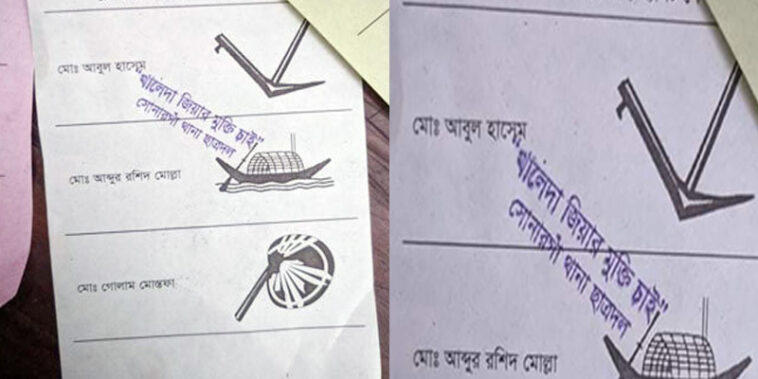 মোঃ আবুল হাসেম
"খালেদা জিয়ার মুক্তি চাই"
সোনারগাঁ থানা ছাত্রদল
মোঃ আব্দুর রশিদ মোল্লা
মোঃ গোলাম মোস্তফা
মোঃ আবুল হাসেম
"খালেদা জিয়ার মুক্তি চাই"
সোনারগাঁ থানা ছাত্রদল
মোঃ আব্দুর রশিদ মোল্লা